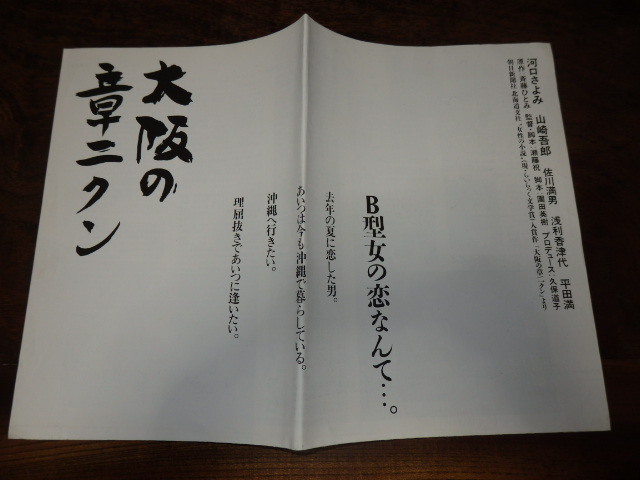 河口さよみ 山崎吾郎 佐川満男 浅利香津代 平田満
原作・斎藤ひとみ 監督・脚本 瀬藤祝 脚本 園田英樹 プロデュース 久保道子
朝日新聞社 北海道支社 女性の小説 らいらっく文学賞 入賞作「大阪の章ニクン」より
B型女の恋なんて…。
去年の夏に恋した男。
あいつは今も沖縄で暮らしている。
沖縄へ行きたい。
理屈抜きであいつに逢いたい。
大阪の
章ニクン